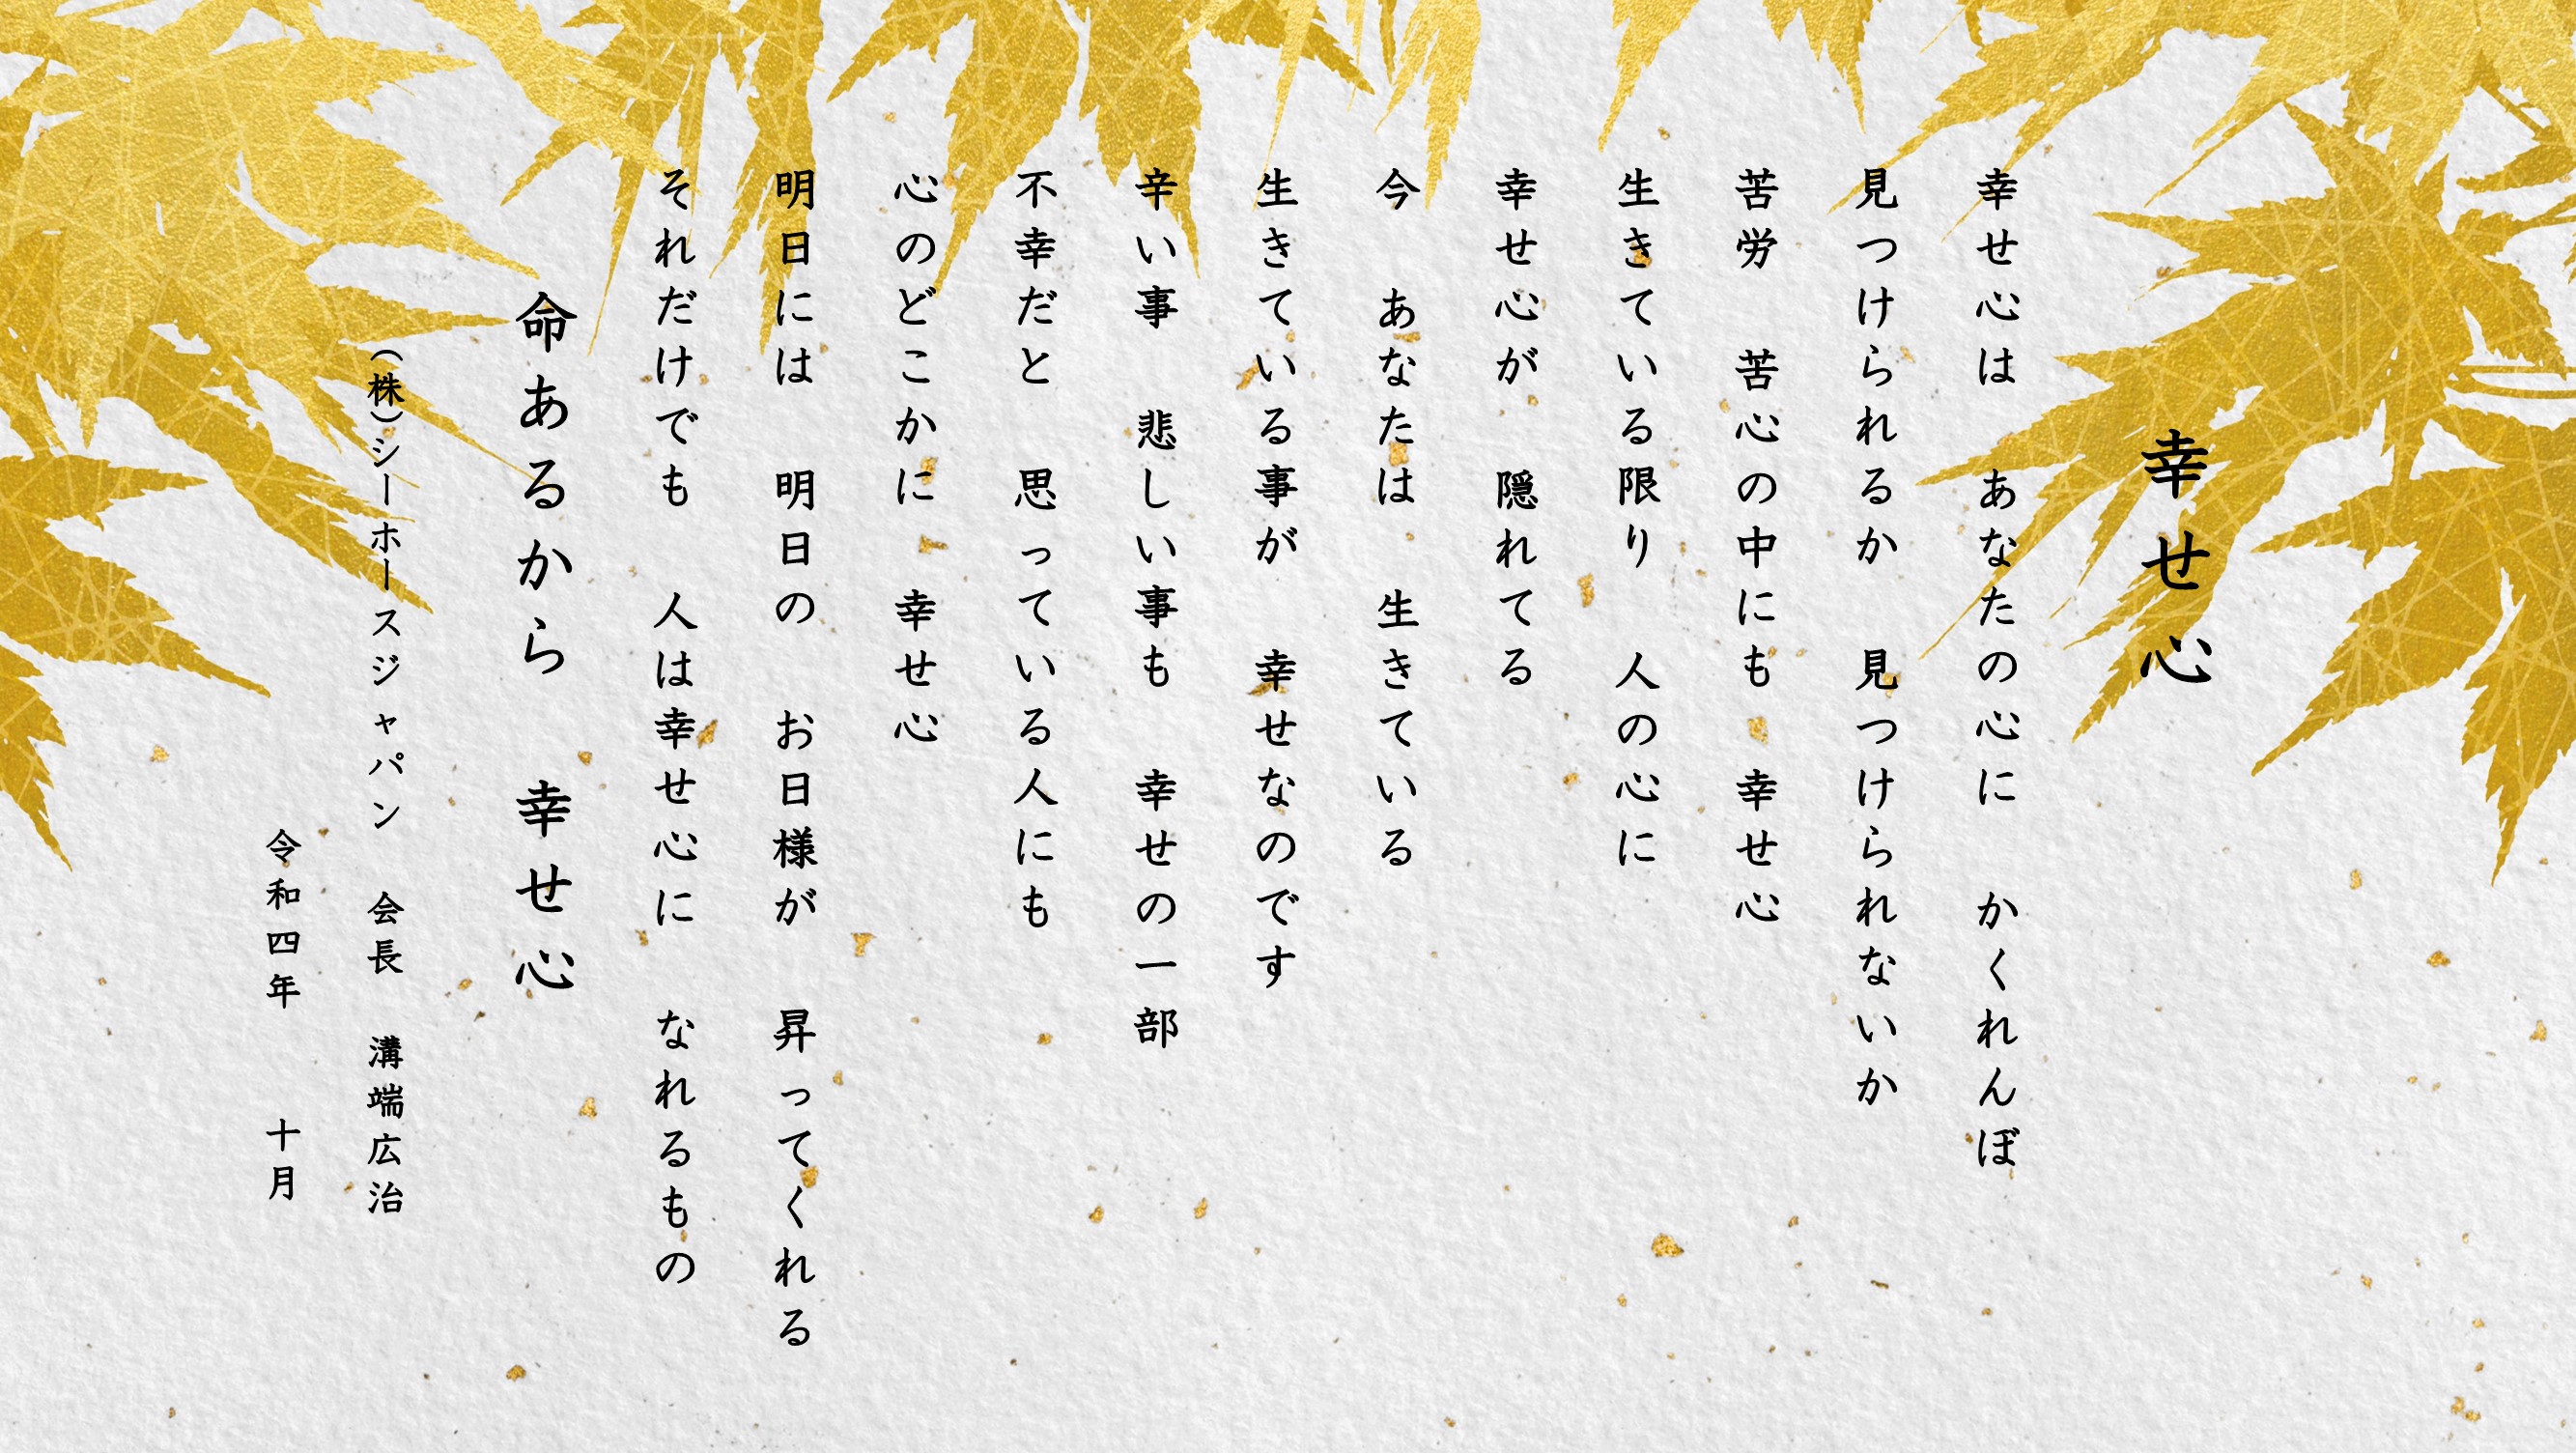 幸せ心
幸せ心は　あなたの心に　かくれんぼ
見つけられるか　見つけられないか
苦労　苦心の中にも　幸せ心
生きている限り　人の心に
幸せ心が　隠れてる
今　あなたは　生きている
生きている事が　幸せなのです
辛い事　悲しい事も　幸せの一部
不幸だと　思っている人にも
心のどこかに　幸せ心
明日には　明日の　お日様が　昇ってくれる
それだけでも　人は幸せ心に　なれるもの
命あるから　幸せ心
（株）シーホースジャパン　会長　溝端広治
令和四年　　十月